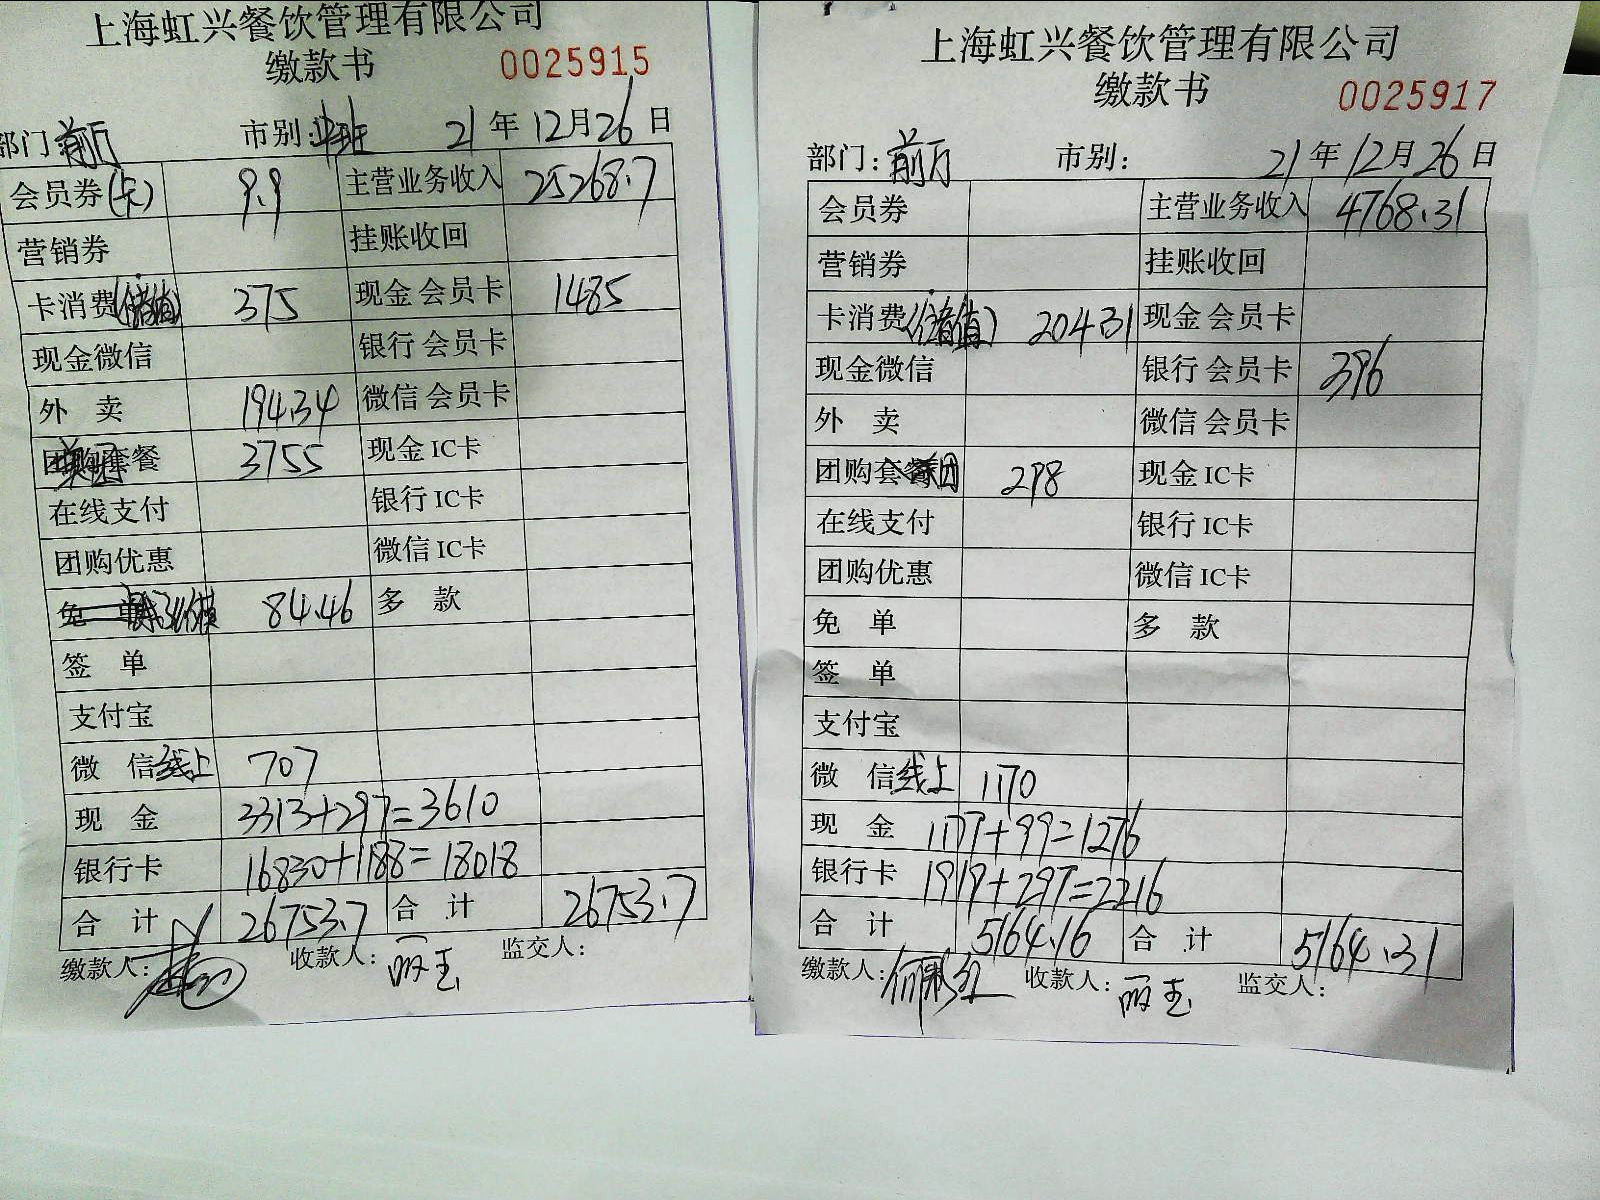 上海虹兴餐饮管理有限公司
缴款书 0025915
部门 前厅 市别: 中班 21 年 12 月 26 日
会员券(卡) 9.9 主营业务收入 25268.7
营销券 挂账收回
卡消费(储值) 375 现金 会员卡 1485
现金微信 银行 会员卡
外 卖 194.34 微信 会员卡
团购套餐 3755 现金 IC卡
在线支付 银行 IC卡
团购优惠 微信 IC卡
免 单 84.46 多 款
签 单
支付宝
微 信线上 707
现 金 3313+297=3610
银行卡 16830+1188=18018
合 计 26753.7 合 计 26753.7
缴款人: 收款人: 丽玉 监交人:
上海虹兴餐饮管理有限公司
缴款书 0025917
部门: 前厅 市别: 21 年 12 月 26 日
会员券 主营业务收入 4768.31
营销券 挂账收回
卡消费(储值) 204.31 现金 会员卡
现金微信 银行 会员卡 396
外 卖 微信 会员卡
团购套餐 298 现金 IC卡
在线支付 银行 IC卡
团购优惠 微信 IC卡
免 单 多 款
签 单
支付宝
微 信线上 1170
现 金 1177+99=1276
银行卡 1919+297=2216
合 计 5164.16 合 计 5164.31
缴款人: 收款人: 丽玉 监交人: